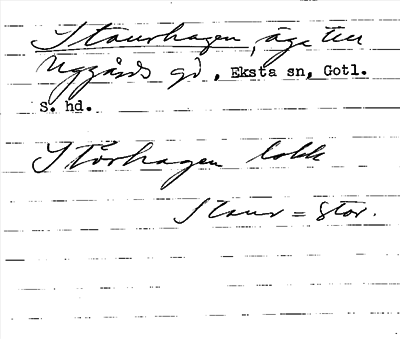 Staurhagen, äga till
Uggårds gd, Eksta sn, Gotl.
S. hd.
Storhagen lokk
Staur = Stor.